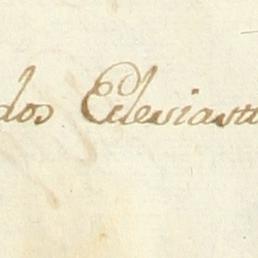 dos Eclesiasti